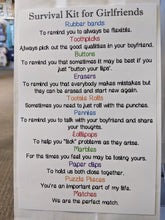 Survival Kit for Girlfriends
Rubber bands
To remind you to always be flexible.
Toothpicks
Always pick out the good qualities in your boyfriend.
Buttons
To remind you that sometimes it may be best if you
just "button your lips".
Erasers
To remind you that everybody makes mistakes but
they can be erased and start new again.
Tootsie Rolls
Sometimes you need to just roll with the punches.
Pennies
To remind you to talk with your boyfriend and share
your thoughts.
Lollipops
To help you "lick" problems as they arise.
Marbles
For the times you feel you may be losing yours.
Paper clips
To hold us both close together.
Puzzle Pieces
You're an important part of my life.
Matches
We are the perfect match.